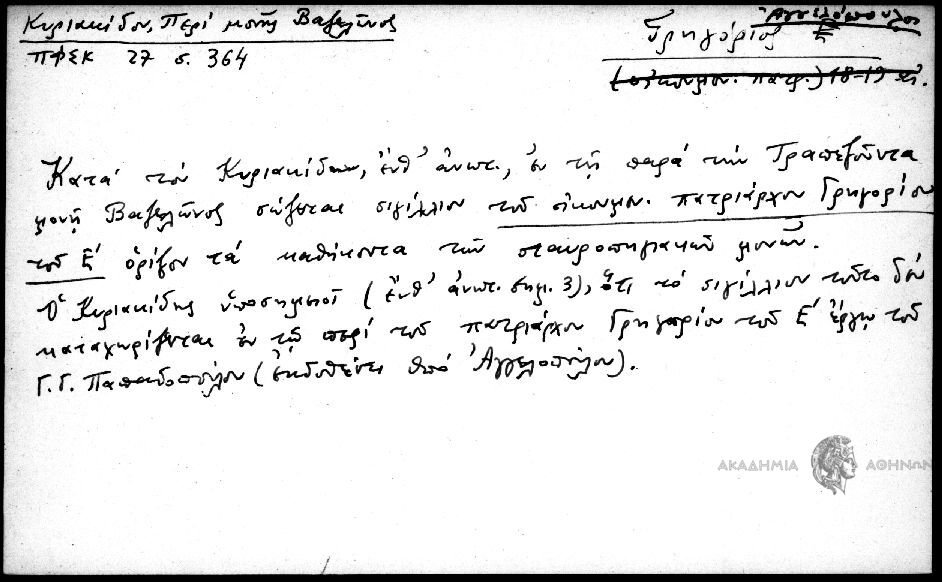 Κυριακίδου, Περί μονῆς Βαζελῶνος
ΠΦΣΚ 27 σ. 364
Ἀγγελόπουλος
Γρηγόριος Ε΄
(οἰκουμεν. πατρ.) 18-19 αἰ.
Κατά τόν Κυριακίδην, ἔνθ' ἀνωτ., ἐν τῇ παρά τήν Τραπεζοῦντα
μονῇ Βαζελῶνος σώζεται σιγίλλιον τοῦ οἰκουμεν. πατριάρχου Γρηγορίου
τοῦ Ε΄ ὁρίζον τά καθήκοντα τῶν σταυροπηγιακῶν μονῶν.
Ὁ Κυριακίδης ὑποσημειοῖ (ἔνθ' ἀνωτ. σημ. 3), ὅτι τό σιγίλλιον τοῦτο δέν
καταχωρίζεται ἐν τῷ περί τοῦ πατριάρχου Γρηγορίου τοῦ Ε΄ ἔργῳ τοῦ
Γ. Γ. Παπαδοπούλου (ἐκδοθέντι ὑπό Ἀγγελοπούλου).
ΑΚΑΔΗΜΙΑ ΑΘΗΝΩΝ